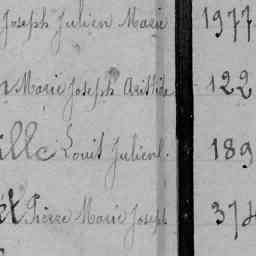 Joseph Julien Marie 1977
Marie Joseph Aristide 122
ille Louis Julien 189
et Pierre Marie Joseph 374